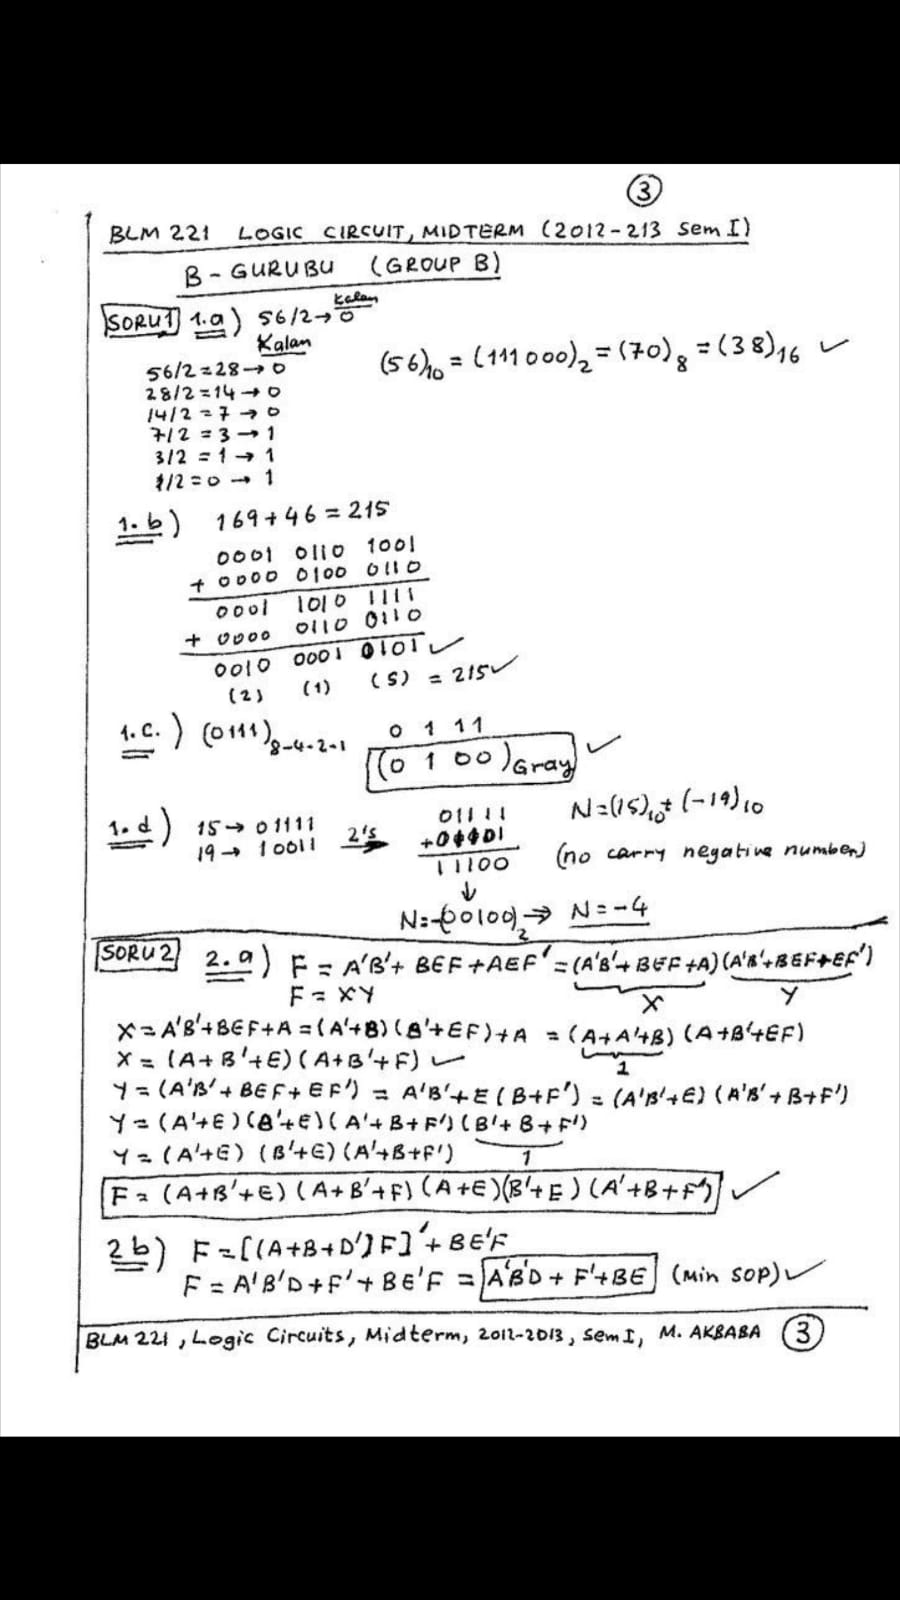 3
BLM 221 LOGIC CIRCUIT, MIDTERM (2012-213 Sem I)
B - GURUBU (GROUP B)
SORU1 1.a) 56/2→0 Kalan
Kalan
56/2=28→0
28/2=14→0
14/2=7→0
7/2=3→1
3/2=1→1
1/2=0→1
(56)₁₀=(111000)₂=(70)₈=(38)₁₆ ✓
1.b) 169+46=215
0001 0110 1001
+ 0000 0100 0110
0001 1010 1111
+ 0000 0110 0110
0010 0001 0101 ✓
(2) (1) (5) = 215 ✓
1.c.) (0111)8-4-2-1 0 1 11
(0 1 00)Gray ✓
1.d) 15→01111
19→10011
2's
01111
+01101
11100
↓
N=-(00100)₂→ N=-4
N=(15)₁₀+(-19)₁₀
(no carry negative number)
SORU2 2.a) F = A'B'+ BEF+AEF' = (A'B'+BEF+A)(A'B'+BEF+EF')
F = XY X Y
X=A'B'+BEF+A=(A'+B)(B'+EF)+A = (A+A'+B)(A+B'+EF)
1
X = (A+B'+E)(A+B'+F) ✓
Y=(A'B'+BEF+EF') = A'B'+E(B+F') = (A'B'+E)(A'B'+B+F')
Y=(A'+E)(B'+E)(A'+B+F')(B'+B+F')
1
Y=(A'+E)(B'+E)(A'+B+F')
F=(A+B'+E)(A+B'+F)(A+E)(B'+E)(A'+B+F') ✓
2b) F=[(A+B+D')F]'+BE'F
F = A'B'D+F'+BE'F = A'B'D+F'+BE' (Min SOP) ✓
BLM 221, Logic Circuits, Midterm, 2012-2013, Sem I, M. AKBABA 3